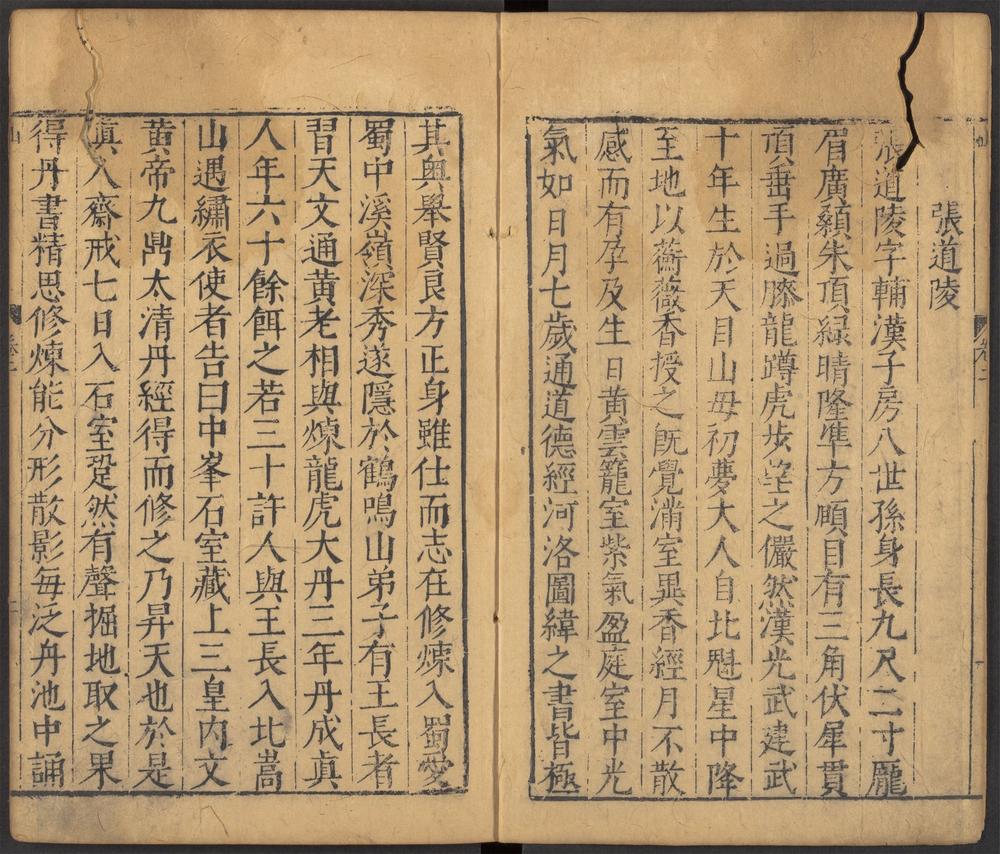 張道陵
張道陵字輔漢子房八世孫身長九尺二寸龐
眉廣顙朱頂綠睛隆準方頤目有三角伏犀貫
頂垂手過膝龍蹲虎步望之儼然漢光武建武
十年生於天目山母初夢大人自北魁星中降
至地以蘅薇香授之既覺滿室異香經月不散
感而有孕及生日黃雲籠室紫氣盈庭室中光
氣如日月七歲通道德經河洛圖緯之書皆極
其奧舉賢良方正身雖仕而志在修煉入蜀愛
蜀中溪嶺深秀遂隱於鶴鳴山弟子有王長者
習天文通黃老相與煉龍虎大丹三年丹成眞
人年六十餘餌之若三十許人與王長入北嵩
山遇繡衣使者告曰中峯石室藏上三皇内文
黃帝九鼎太清丹經得而修之乃昇天也於是
眞人齋戒七日入石室跫然有聲掘地取之果
得丹書精思修煉能分形散影每泛舟池中誦